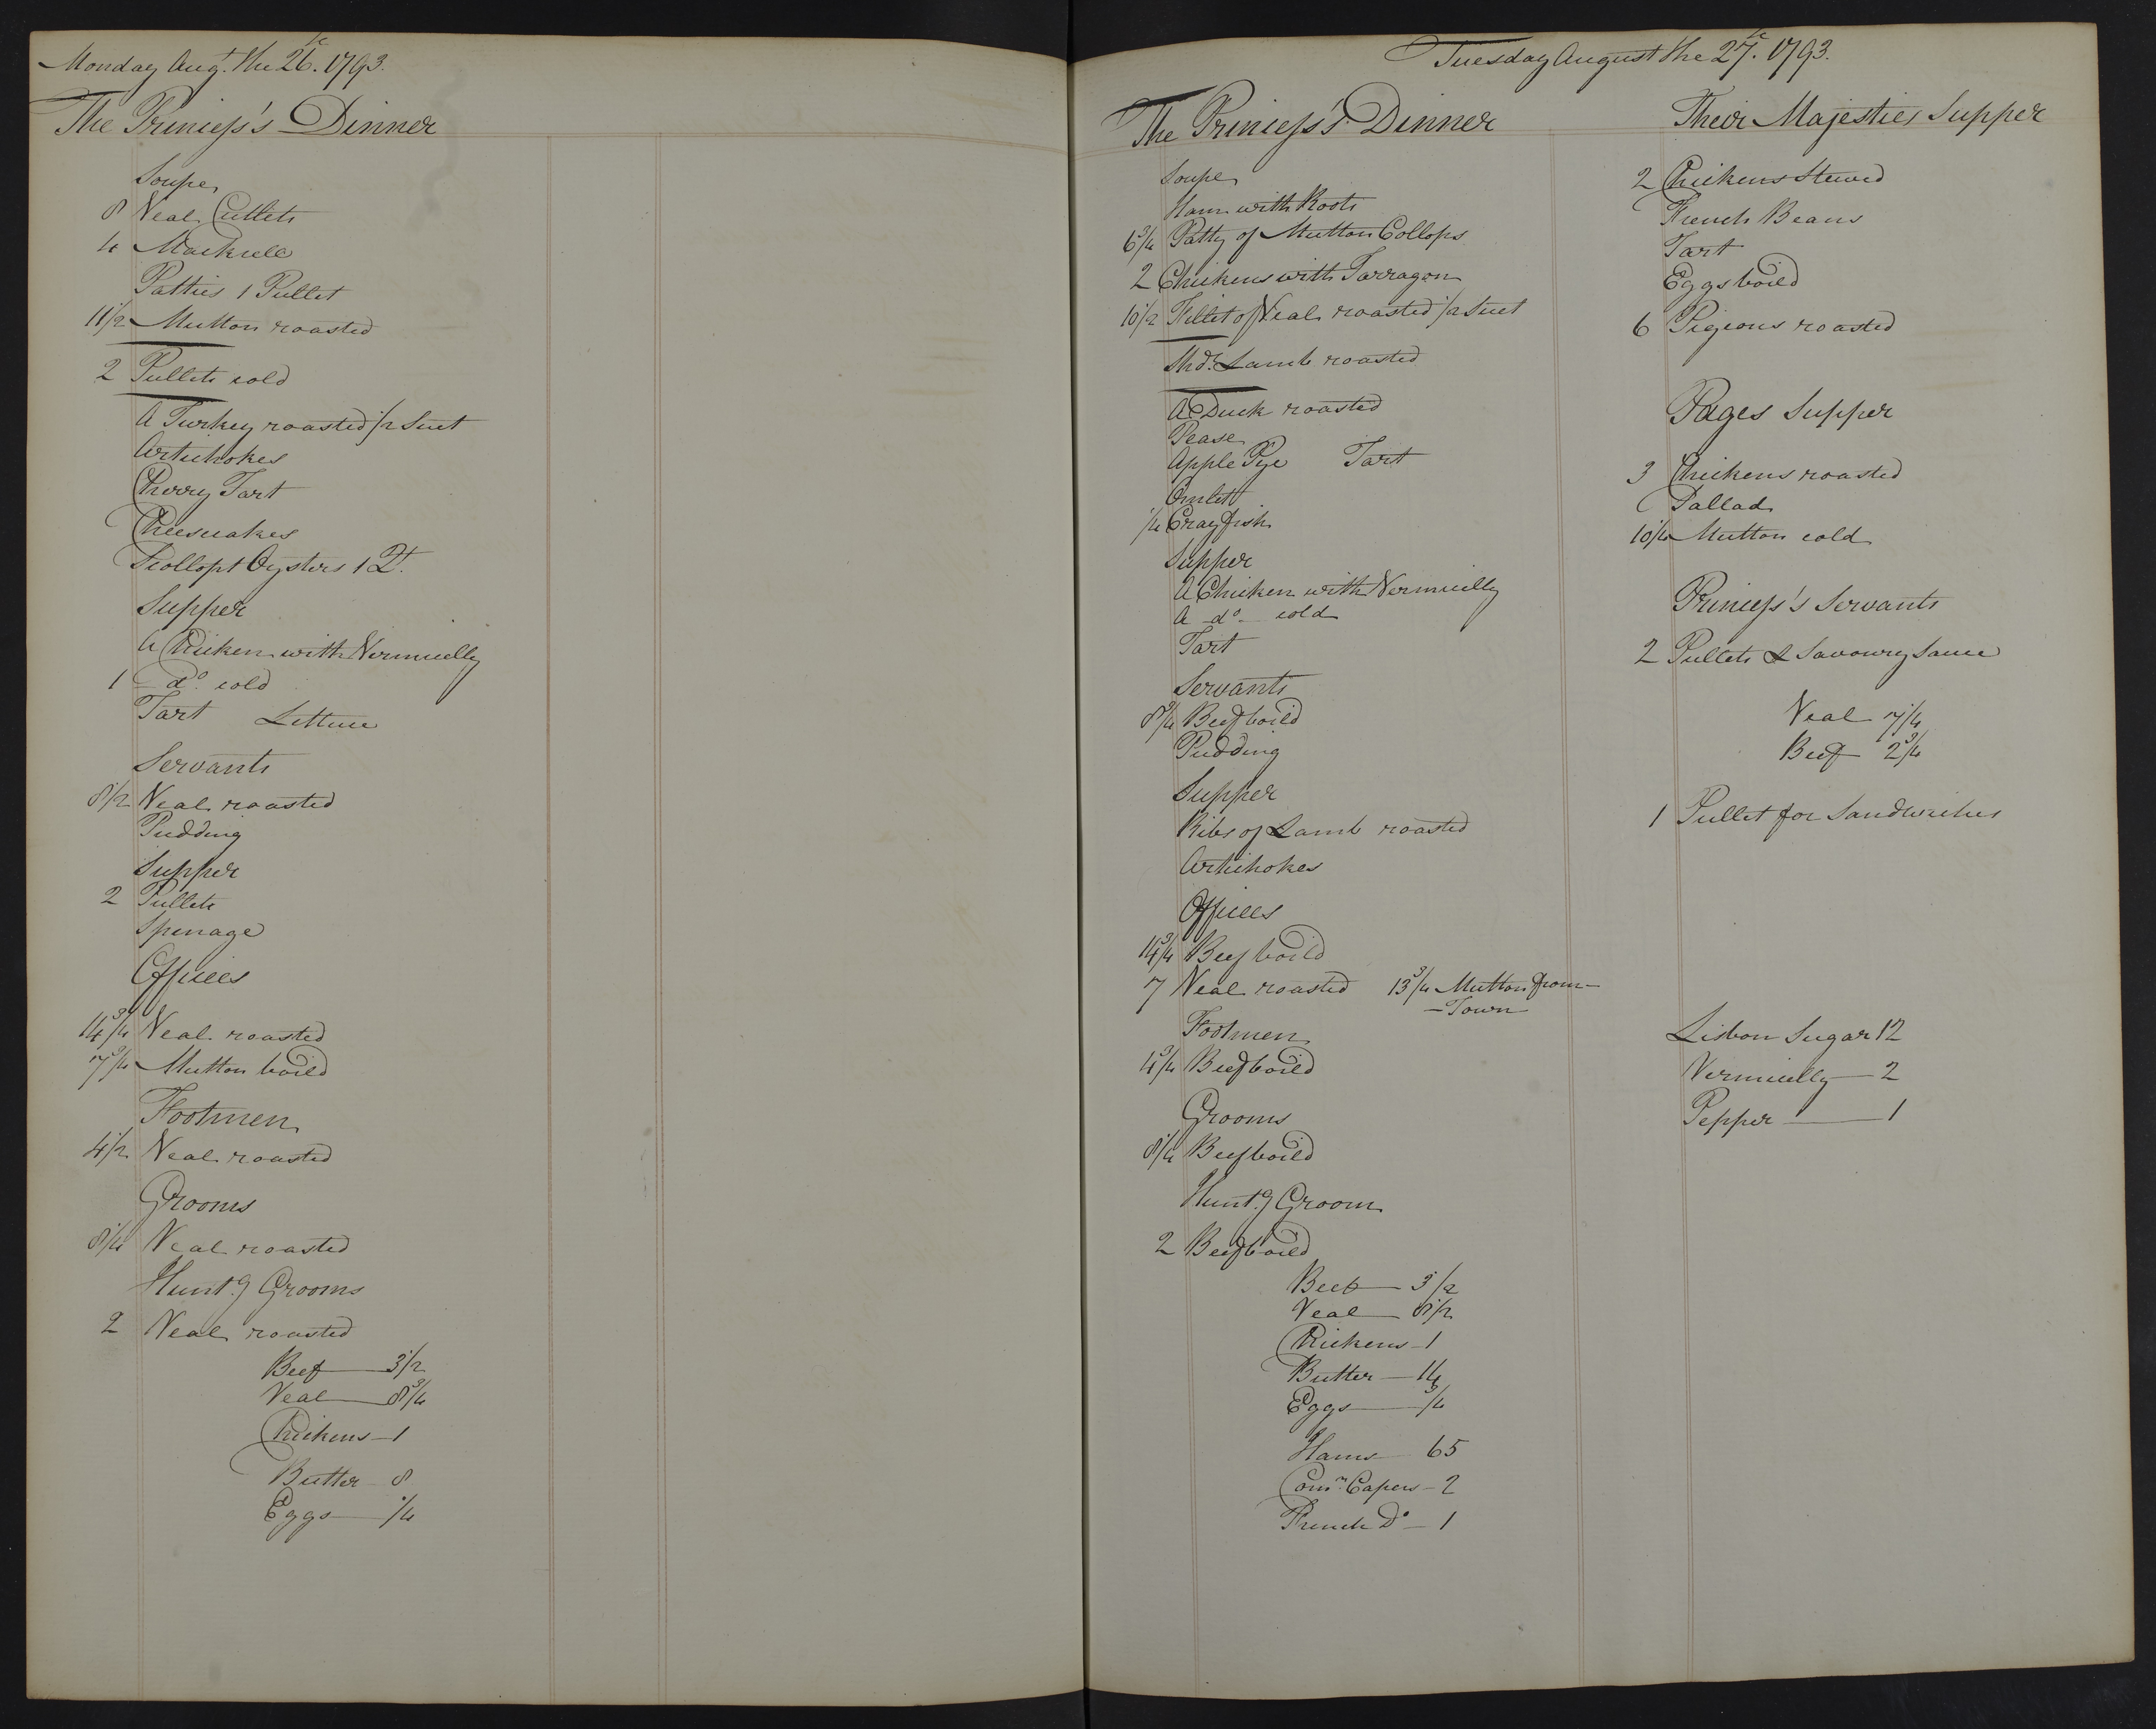 Monday Augt. the 26th. 1793.
The Princess's Dinner
Soupe
8 Veal Cutlets
4 Mackrell
Patties 1 Pullet
11 1/2 Mutton roasted
2 Pullets cold
A Turkey roasted 1/2 Suet
Artichokes
Cherry Tart
Cheescakes
Scollopt Oysters 1 Qt.
Supper
A Chicken with Vermicelly
1 - do. cold
Tart Lettuce
Servants
8 1/2 Veal roasted
Pudding
Supper
2 Pullets
Spinage
Offices
14 3/4 Veal roasted
7 3/4 Mutton boild
Footmen
4 1/2 Veal roasted
Grooms
8 1/4 Veal roasted
Huntg Grooms
2 Veal roasted
Beef 3 1/2
Veal 8 3/4
Chickens 1
Butter 8
Eggs 1/4
Tuesday August the 27th. 1793.
The Princess's Dinner
Soupe
Ham with Roots
6 3/4 Patty of Mutton Collops
2 Chickens with Tarragon
10 1/2 Fillet of Veal roasted 1/2 Suet
Shdr. Lamb roasted
A Duck roasted
Pease
Apple Pye Tart
Omlett
1/4 Crayfish
Supper
A Chicken with Vermicelly
A do cold
Tart
Servants
8 3/4 Beef boild
Pudding
Supper
Ribs of Lamb roasted
Artichokes
Offices
14 3/4 Beef boild
7 Veal roasted 13 3/4 Mutton from
Town
Footmen
4 3/4 Beef boild
Grooms
8 1/4 Beef boild
Huntg Groom
2 Beef boild
Beef 3 1/2
Veal 8 1/2
Chickens 1
Butter 14
Eggs 3/4
Hams 65
Comn. Capers 2
French Do 1
Their Majesties Supper
2 Chickens Stewed
French Beans
Tart
Eggs boild
6 Pigeons roasted
Pages Supper
3 Chickens roasted
Sallad
10 1/4 Mutton cold
Princess's Servants
2 Pullets & Savoury Sauce
Veal 7 1/4
Beef 2 3/4
1 Pullet for Sandwiches
Lisbon Sugar 12
Vermicelly 2
Pepper 1